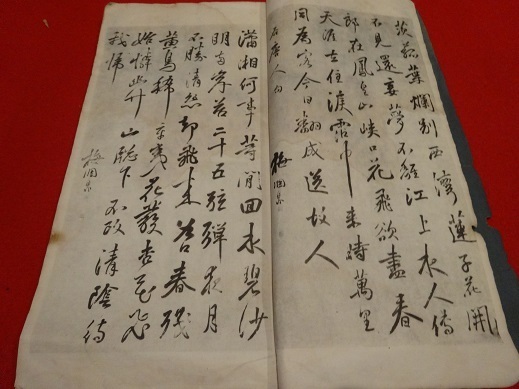 茨菰葉爛別西灣蓮子花開
不見還妾夢不離江上水人傳
郎在鳳皇山峽口花飛欲盡春
天涯去住淚霑巾來時萬里
同為客今日翻成送故人
右唐人句 梅調鼎
瀟湘何事等閒回水碧沙
明兩岸苔二十五弦彈夜月
不勝清怨却飛來谷口春殘
黃鳥稀辛夷花發杏花飛
始憐幽竹山牕下不改清陰待
我歸 梅調鼎